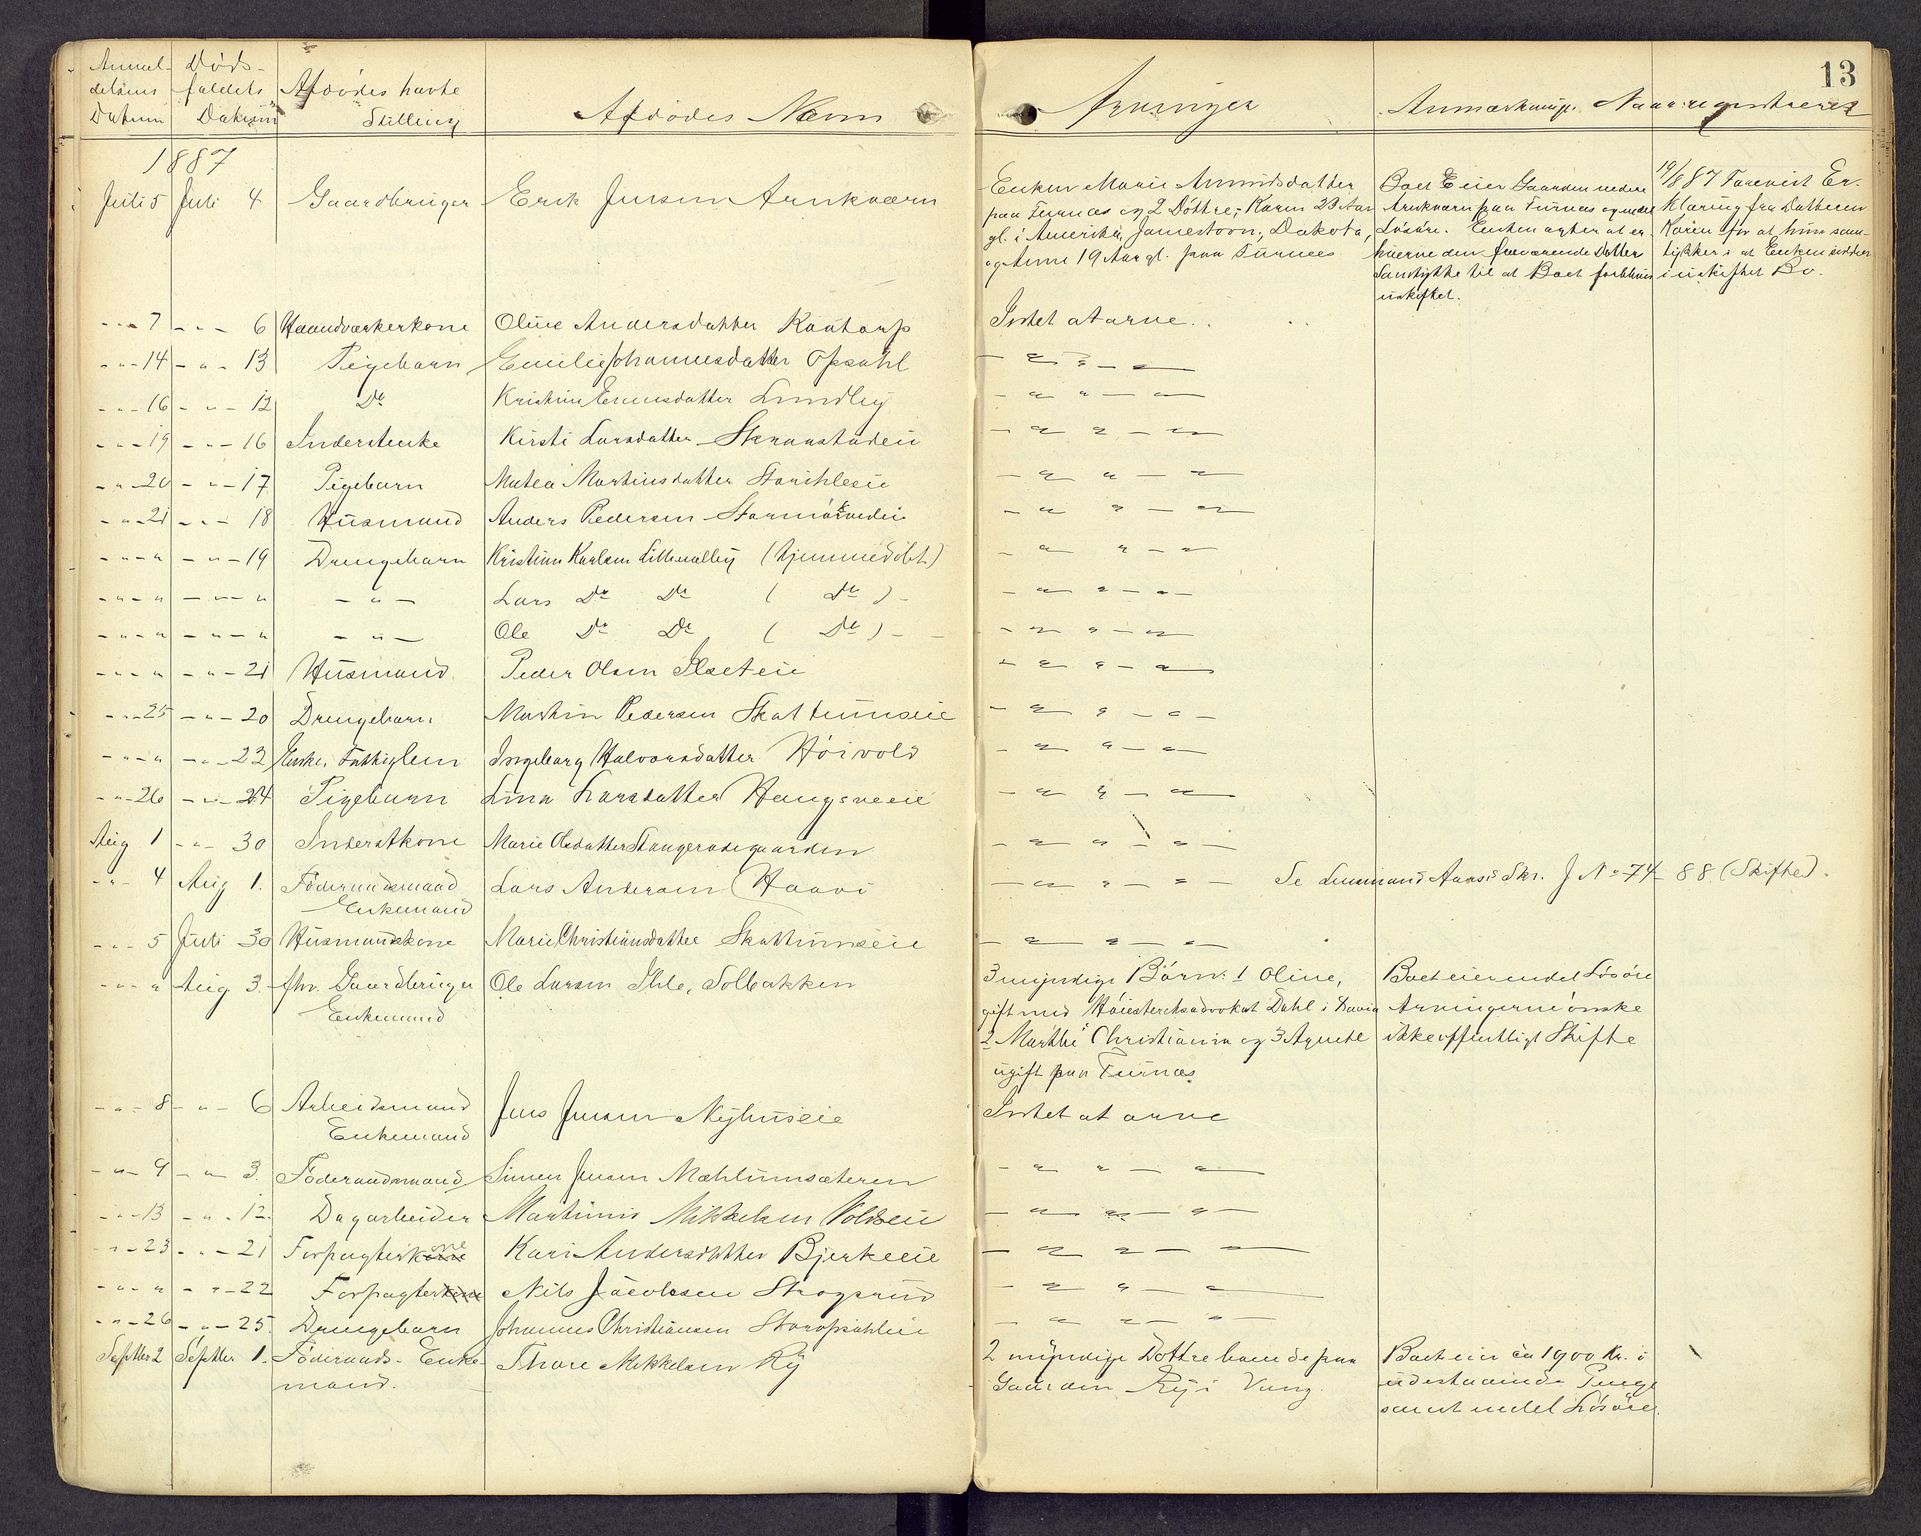 Anmel- Døds- Afdødes havte Afdødes Navn Arvinger Anmærkning. Naar registreret 13
delsens faldets Stilling
Datum Datum
1887
Juli 5 Juli 4 Gaardbruger Erik Jensen Arnkværn
Enken Marie Amundsdatter
paa Furnæs og 2 Døttre; Karen 23 Aar
gl. i Amerika, Jamestown, Dakota,
og Anne 19 Aar gl. paa Furnæs
Boet Eier Gaarden nedre
Arnkværn paa Furnæs og endel
Løsøre. Enken agter at er
hverve den fraværende Datter
Samtykke til at Boet forbliver
uskiftet.
19/8 87 Forevist Er-
klæring fra Datteren
Karen for at hun sam-
tykker i at Enken sidder
i uskiftet Bo.
- " - 7 - " - 6 Haandværkerkone Oline Andersdatter Kaatorp Intet at arve.
- " - 14 - " - 13 Pigebarn Emilie Johannesdatter Opsahl - " " - " -
- " - 16 - " - 12 Do Kristine Evensdatter Lundby - " " - " -
- " - 19 - " - 16 Inderstenke Kirsti Larsdatter Skraastadeie - " " - " -
- " - 20 - " - 17 Pigebarn Matea Martinsdatter Storihleeie - " " - " -
- " - 21 - " - 18 Husmand Anders Pedersen - " " - " -
- " - " - " - 19 Drengebarn Kristian Karlsen Lillevolley (hjemmedøbt) - " " - " -
- " - " - " - " - " - Lars Do Do ( Do ) - - " " - " -
- " - " - " - " - " - Ole Do Do ( Do ) - - " " - " -
- " - " - " - 21 Husmand. Peder Olsen Ilseteie - " " - " -
- " - 25 - " - 20 Drengebarn Martin Pedersen Skattumseie - " " - " -
- " - " - " - 23 Enke, Fattiglem Ingeborg Halvorsdatter Høivold - " " - " -
- " - 26 - " - 24 Pigebarn Lina Larsdatter Haugsveeie - " " - " -
Aug 1 - " - 30 Inderstkone Marie Olsdatter Stangerødegaarden - " " - " -
- " - 4 Aug 1. Føderaadsmand Lars Andersen Haave - " - " - Se Lensmand Aases Skr. J No 74 - 88. (Skifted).
Enkemand
- " - 5 Juli 30 Husmandskone Marie Christiansdatter Skattumseie - " " - " -
- " - " Aug 3. fhv. Gaardbruger Ole Larsen Ihle, Solbakken
Enkemand
3 myndige Børn: 1 Oline,
gift med Høiesteretsadvokat Dahl i
2 Marthe Christiania og 3 Agnete
ugift paa Furnæs
Boet eier endel Løsøre
Arvingerne ønske
ikke offentligt Skifte
- " - 8 - " - 6 Arbeidsmand Jens Jensen Nyhuseie Intet at arve
Enkemand
- " - 9 - " - 3. Føderaadsmand Simen Jensen Mæhlumsæteren - " " - " -
- " - 13 - " - 12. Dagarbeider Martinus Mikkelsen Voldseie - " " - " -
- " - 23 - " - 21 Forpagterkone Kari Andersdatter Bjerkeeie - " " - " -
- " - " - " - 22 Forpagter Nils Jacobsen Skogsrud - " " - " -
- " - 26 - " - 25. Drengebarn Johannes Christiansen Storopsahleie - " " - " -
Septbr 2 Septbr 1. Føderaads- Enke- Thore Mikkelsen Ry
mand.
2 myndige Døttre boende paa
Gaarden Ry i Vang.
Boet eier ca 1900 Kr. i
udestaaende Penge
samt endel Løsøre.